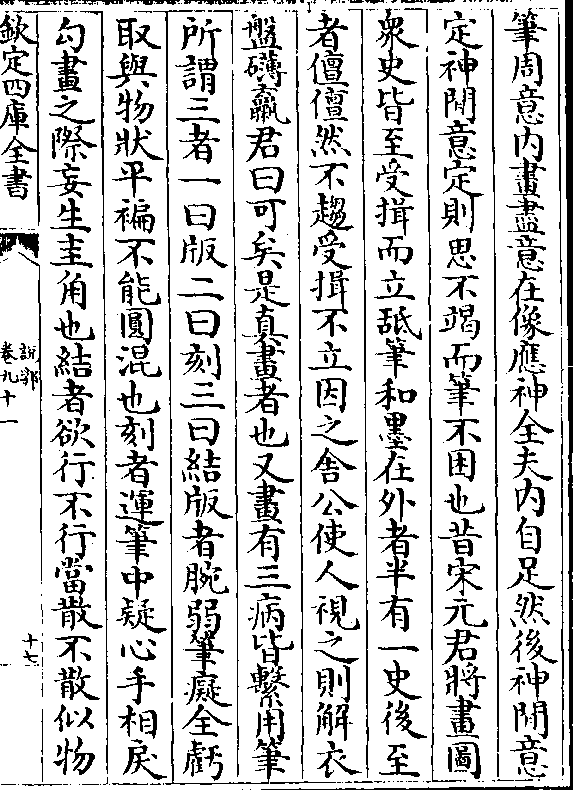 筆周意内畫盡意在像應神全夫内自足然後神閒意
定神閒意定則思不竭而筆不困也昔宋元君將畫圖
衆史皆至受揖而立舐筆和墨在外者半有一史後至
者儃儃然不趨受揖不立因之舍公使人視之則解衣
盤礴臝君曰可矣是真畫者也又畫有三病皆繫用筆
所謂三者一曰版二曰刻三曰結版者腕弱筆癡全虧
取與物狀平褊不能圓混也刻者運筆中疑心手相戾
勾畫之際妄生圭角也結者欲行不行當散不散似物
欽定四庫全書
說郛
卷九十一
十七